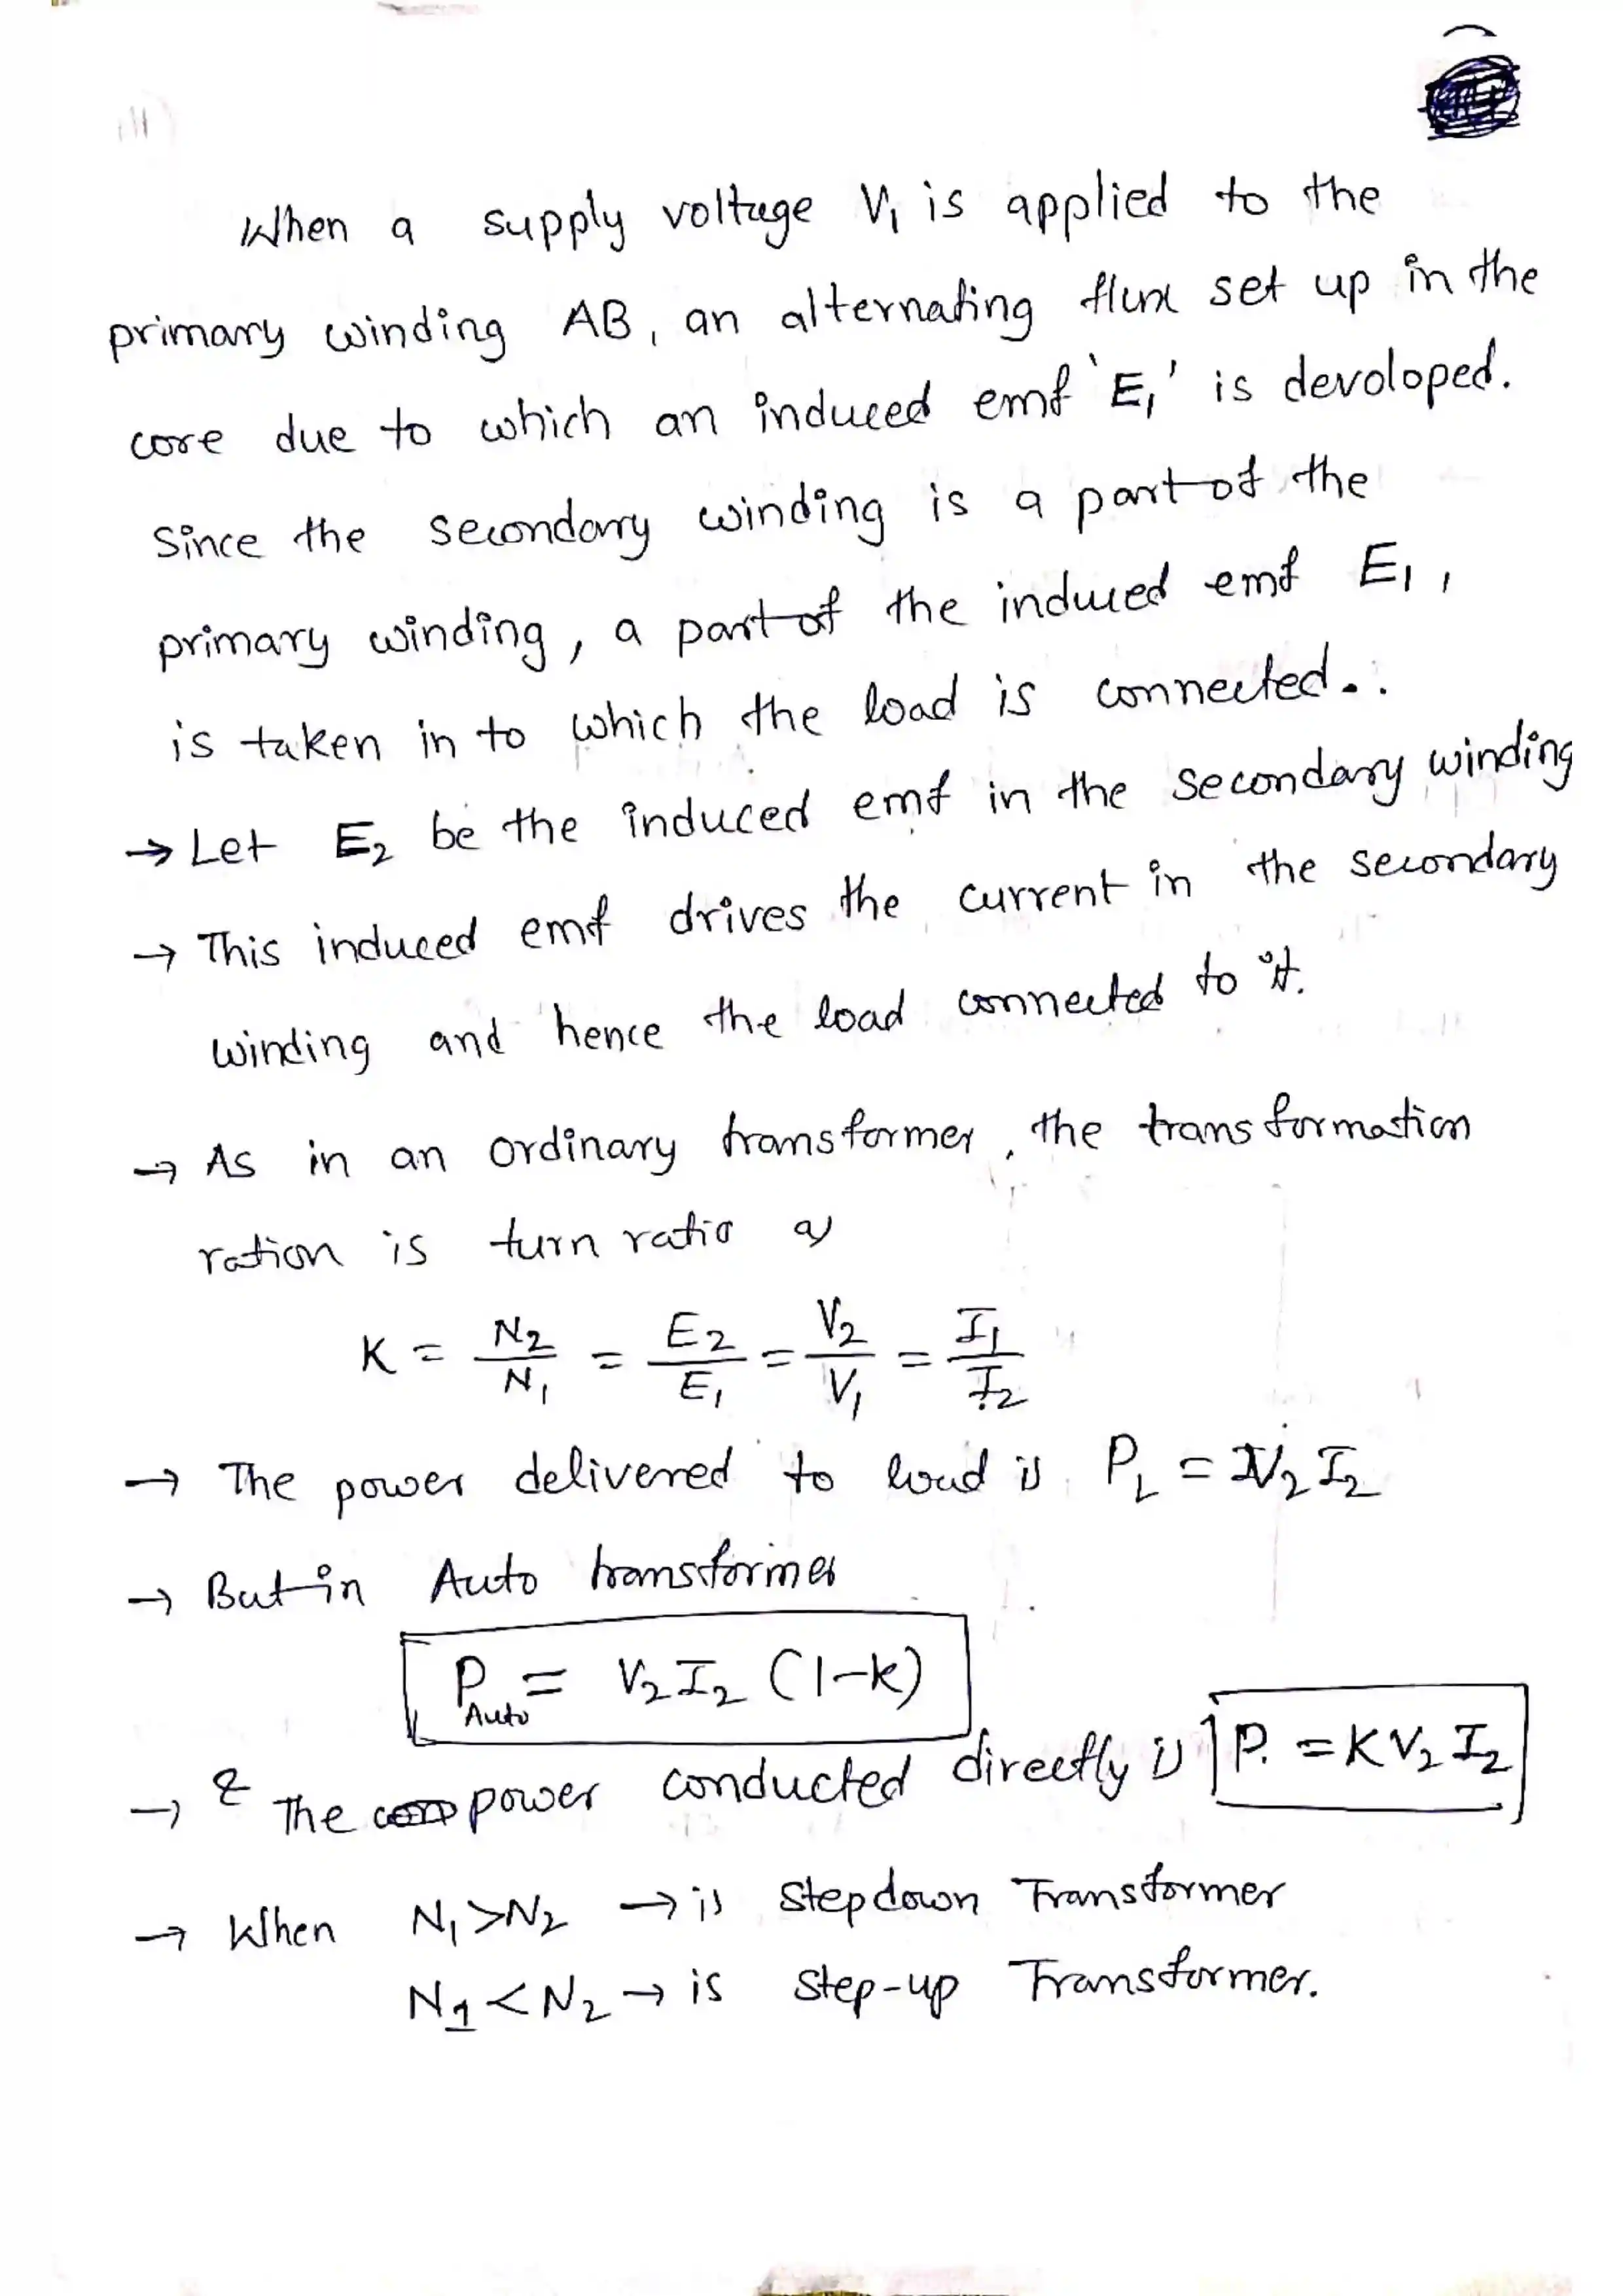 When a supply voltage V₁ is applied to the
primary winding AB, an alternating flux set up in the
core due to which an induced emf 'E₁' is devoloped.
Since the secondary winding is a part of the
primary winding, a part of the induced emf E₁,
is taken in to which the load is connected..
→ Let E₂ be the induced emf in the secondary winding
→ This induced emf drives the current in the secondary
winding and hence the load connected to it.
→ As in an ordinary transformer, the transformation
ration is turn ratio
K = N₂/N₁ = E₂/E₁ = V₂/V₁ = I₁/I₂
→ The power delivered to load is P_L = V₂ I₂
→ But in Auto transformer
P_Auto = V₂ I₂ (1-k)
→ & The power conducted directly is P. = K V₂ I₂
→ When N₁ > N₂ → is Stepdown Transformer
N₁ < N₂ → is Step-up Transformer.